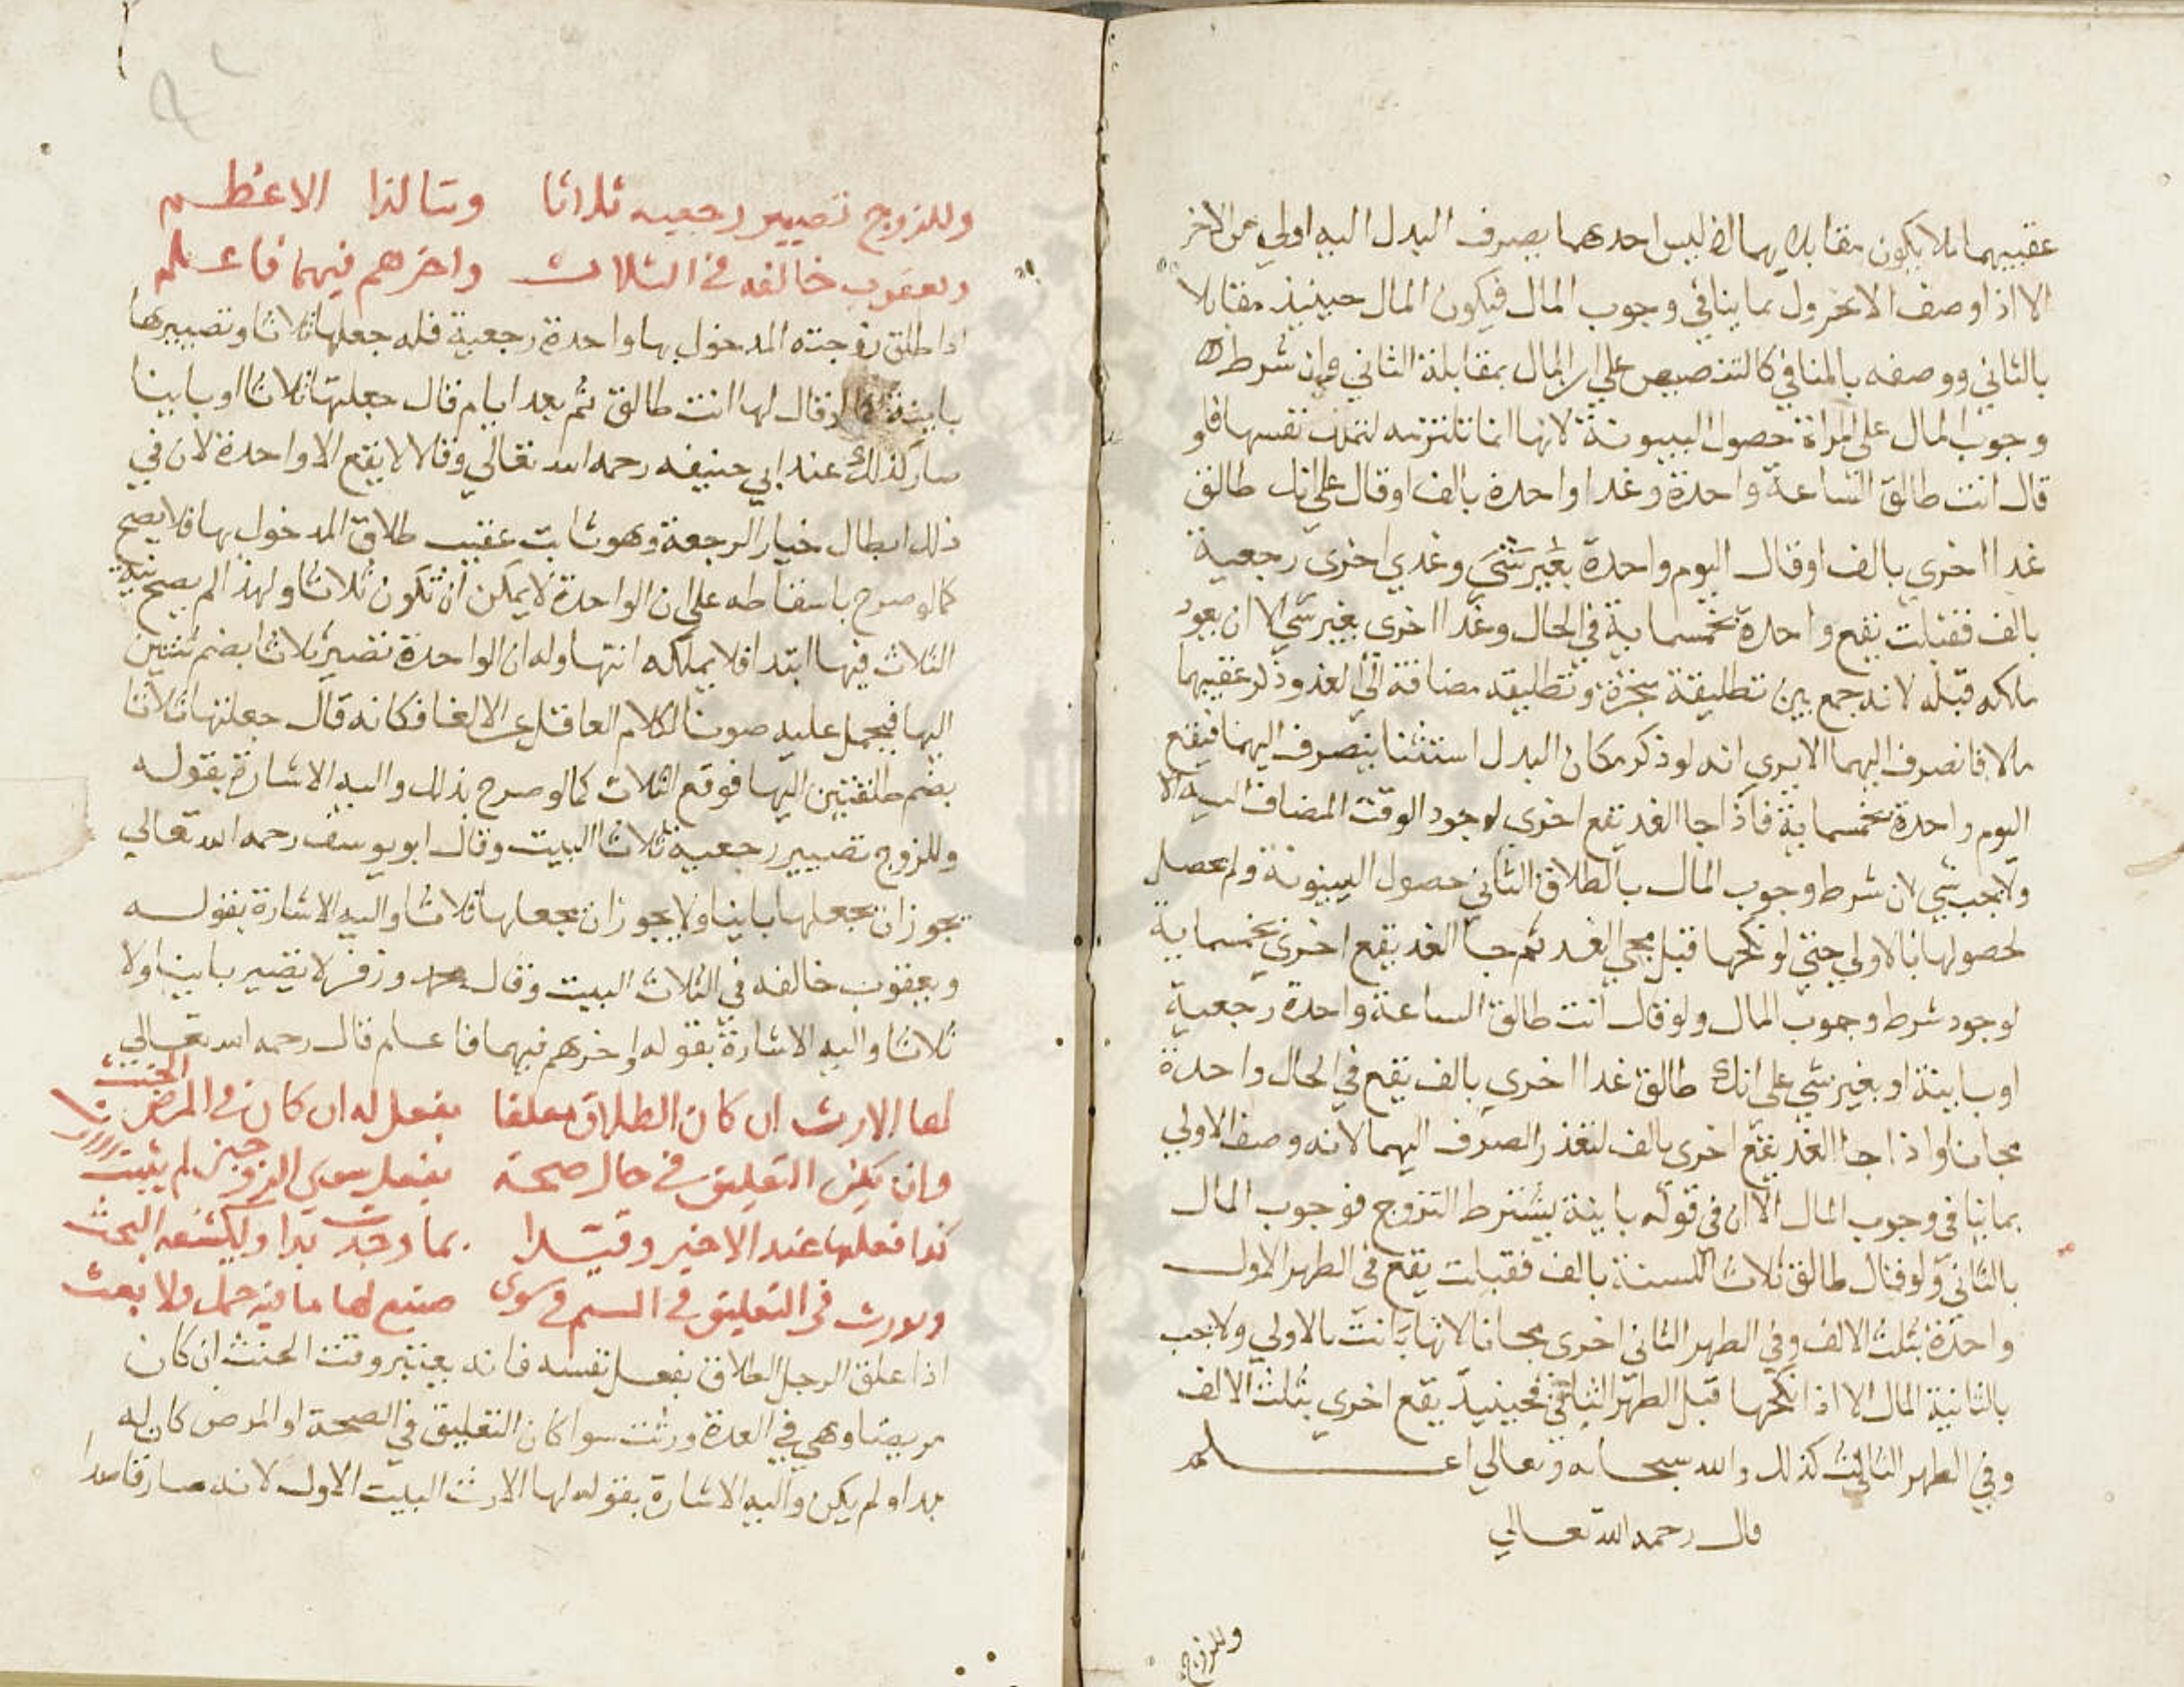 عقيبهما فلا يكون مقابلا بهما اذ ليس احدهما بصرف البدل اليه اولي من الاخر
الا اذا وصف الاول بما ينافي وجوب المال فيكون المال حينيذ مقابلا
بالثاني ووصفه بالمنافي كالتنصيص علي ان المال بمقابلة الثاني وان شرط
وجوب المال علي المراة حصول البينونة لانها انما تلتزمه لتملك نفسها فلو
قال انت طالق الساعة واحدة وغدا واحدة بالف او قال علي انك طالق
غدا اخري بالف او قال اليوم واحدة بغير شي وغدي اخرى رجعية
بالف فقبلت يقع واحدة بخمسماية في الحال وغدا اخرى بغير شي الا ان يعود
ملكه قبله لانه جمع بين تطليقة منجزة وتطليقه مضافة الي الغد وذكر عقيبهما
مالا فانصرف اليهما الا يري انه لو ذكر مكان البدل استثنا ينصرف اليهما فيقع
اليوم واحدة بخمسماية فاذا جا الغد يقع اخري لوجود الوقت المضاف اليه
ولا يجب شي لان شرط وجوب المال بالطلاق الثاني حصول البينونة ولم يحصل
لحصولها بالاولي حتي لو نكحها قبل مجي الغد ثم جا الغد يقع اخري بخمسماية
لوجود شرط وجوب المال ولو قال انت طالق الساعة واحدة رجعية
او باينة او بغير شي علي انك طالق غدا اخرى بالف يقع في الحال واحدة
مجانا واذا جا الغد يقع اخرى بالف لتعذر الصرف اليهما لانه وصف الاولي
بما ينافي وجوب المال الا ان في قوله باينة يشترط التزوج فوجوب المال
بالثاني ولو قال طالق ثلاثا للسنة بالف فقبلت يقع في الطهر الاول
واحدة بثلث الالف وفي الطهر الثاني اخرى مجانا لانها بانت بالاولي ولا يجب
بالثانية المال الا اذا نكحها قبل الطهر الثاني فحينيذ يقع اخري بثلث الالف
وفي الطهر الثالث كذلك والله سبحانه وتعالي اعلم
قال رحمه الله تعالي
وللزوج
وللزوج تصيير رجعيه ثلاثا وبتا لذا الاعظم
ويعقوب خالفه في الثلاث واخرهم فيهما فاعلم
اذا طلق زوجته المدخول بها واحدة رجعية فله جعلها ثلاثا وتصييرها
باينة قال لها انت طالق ثم بعد ايام قال جعلتها ثلاثا او باينا
صار كذلك عند ابي حنيفه رحمه الله تعالي وقالا لا يقع الا واحدة لان في
ذلك ابطال خيار الرجعة وهو ثابت عقيب طلاق المدخول بها فلا يصح
كما لو صرح باسقاطه علي ان الواحدة لا يمكن ان تكون ثلاثا ولهذا لم يصح نية
الثلاث فيها ابتدا فلا يملكه انتها وله ان الواحدة تصير ثلاثا بضم ثنتين
اليها فيحمل عليه صونا لكلام العاقل عن الالغا فكانه قال جعلتها ثلاثا
بضم طلقتين اليها فوقع الثلاث كما لو صرح بذلك واليه الاشارة بقوله
وللزوج تصيير رجعية ثلاثا البيت وقال ابو يوسف رحمه الله تعالي
يجوز ان يجعلها باينا ولا يجوز ان يجعلها ثلاثا واليه الاشارة بقوله
ويعقوب خالفه في الثلاث البيت وقال محمد وزفر لا يصير باينا ولا
ثلاثا واليه الاشارة بقوله واخرهم فيهما فاعلم قال رحمه الله تعالي
لها الارث ان كان الطلاق معلقا بفعل له ان كان في المرض الحنث
وان يكن التعليق في حال صحة بفعل سوي الزوجين لم يثبت
كذا فعلها عند الاخير وقيدا بما وجدت بدا وليكشفه البحث
وورث في التعليق في السقم في سوى صنيع لها ما فيه حمل ولا بعث
اذا علق الرجل الطلاق بفعل نفسه فانه يعتبر وقت الحنث ان كان
مريضا وهي في العدة ورثت سوا كان التعليق في الصحة او المرض كان له
بد او لم يكن واليه الاشارة بقوله لها الارث البيت الاول لانه صار قاصدا